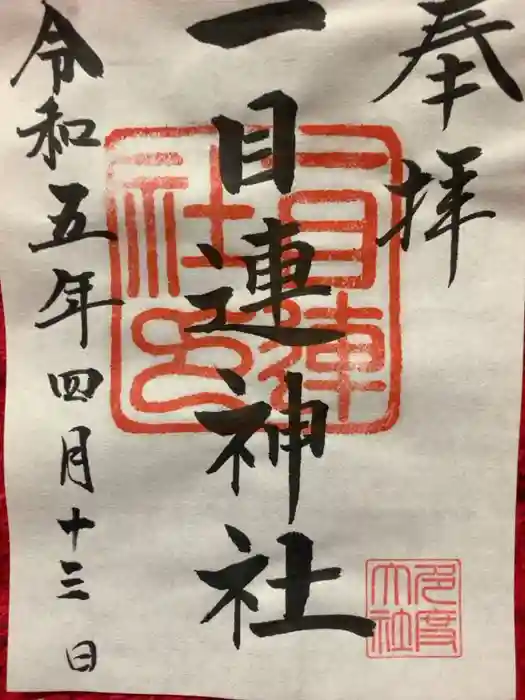 奉拝
一目連神社
令和五年四月十三日
一目連社印
多度大社